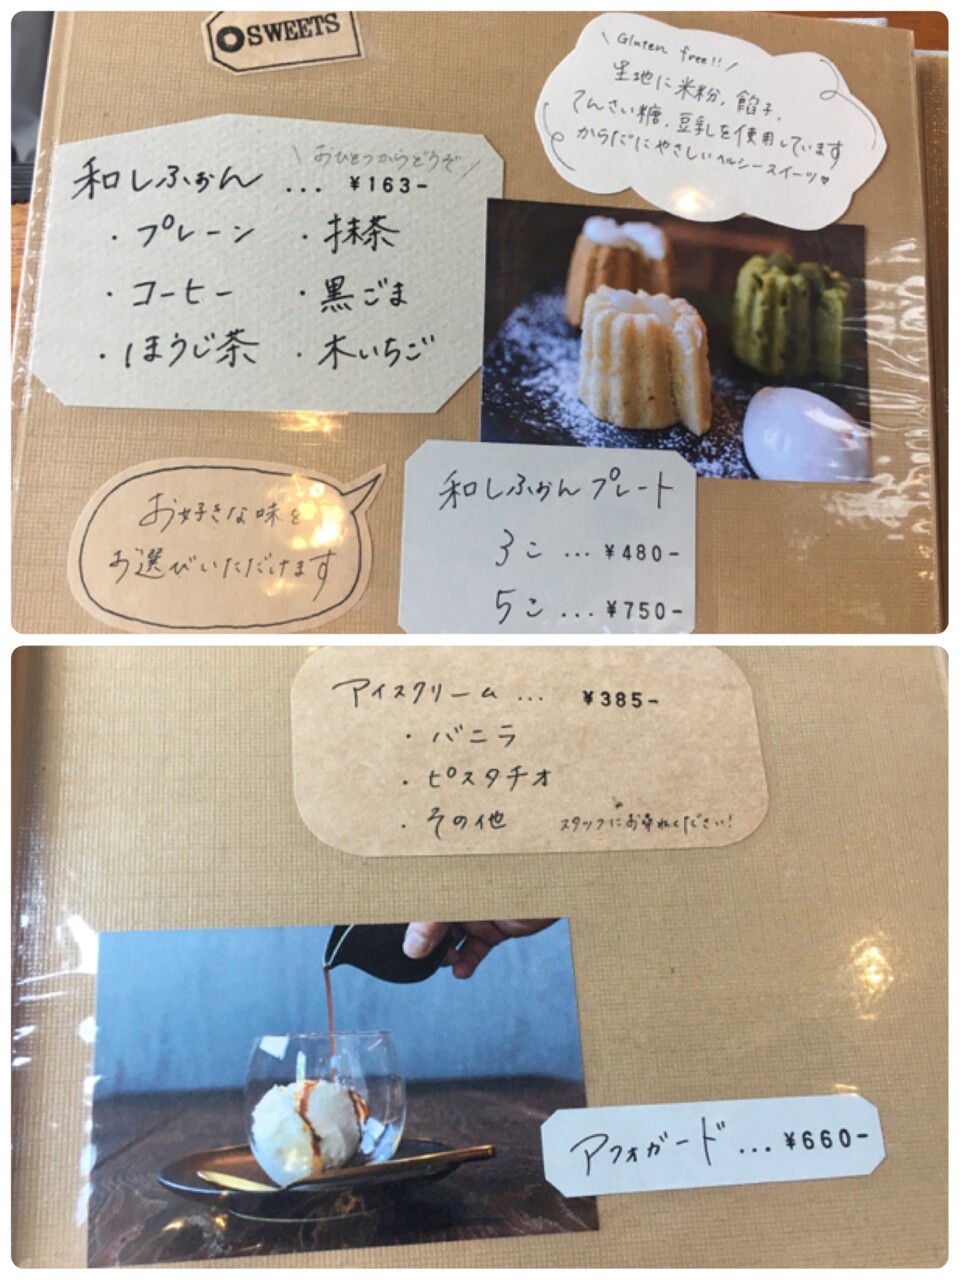 SWEETS
\ Gluten free!! /
生地に米粉、餡子、
てんさい糖、豆乳を使用しています
からだにやさしいヘルシースイーツ♥
\ おひとつからどうぞ /
和しふぉん ... ¥163-
・プレーン ・抹茶
・コーヒー ・黒ごま
・ほうじ茶 ・木いちご
お好きな味を
お選びいただけます
和しふぉんプレート
3こ ... ¥480-
5こ ... ¥750-
アイスクリーム ... ¥385-
・バニラ
・ピスタチオ
・その他 スタッフにお尋ねください!
アフォガード ... ¥660-